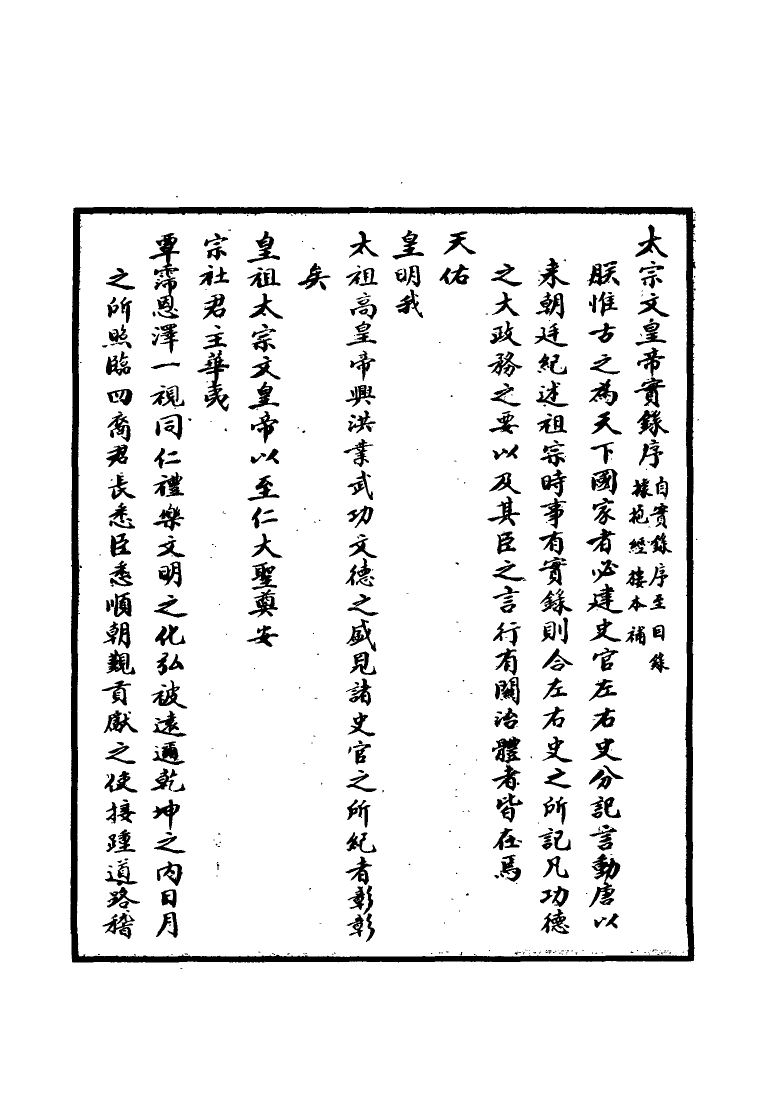 太宗文皇帝實錄序 自實錄序至目錄
據抱經樓本補
朕惟古之為天下國家者必建史官左右史分記言動唐以
來朝廷紀述祖宗時事有實錄則合左右史之所記凡功德
之大政務之要以及其臣之言行有關治體者皆在焉
天佑
皇明我
太祖高皇帝興洪業武功文德之盛見諸史官之所紀者彰彰
矣
皇祖太宗文皇帝以至仁大聖奠安
宗社君主華夷
覃霈恩澤一視同仁禮樂文明之化弘被遠邇乾坤之內日月
之所照臨四裔君長悉臣悉順朝覲貢獻之使接踵道路稽